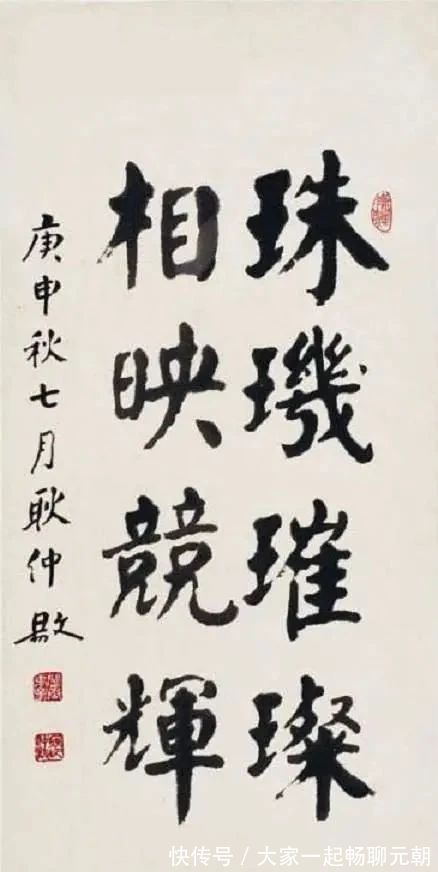 珠璣璀璨
相映競輝
庚申秋七月耿仲敭
快传号/大家一起畅聊元朝